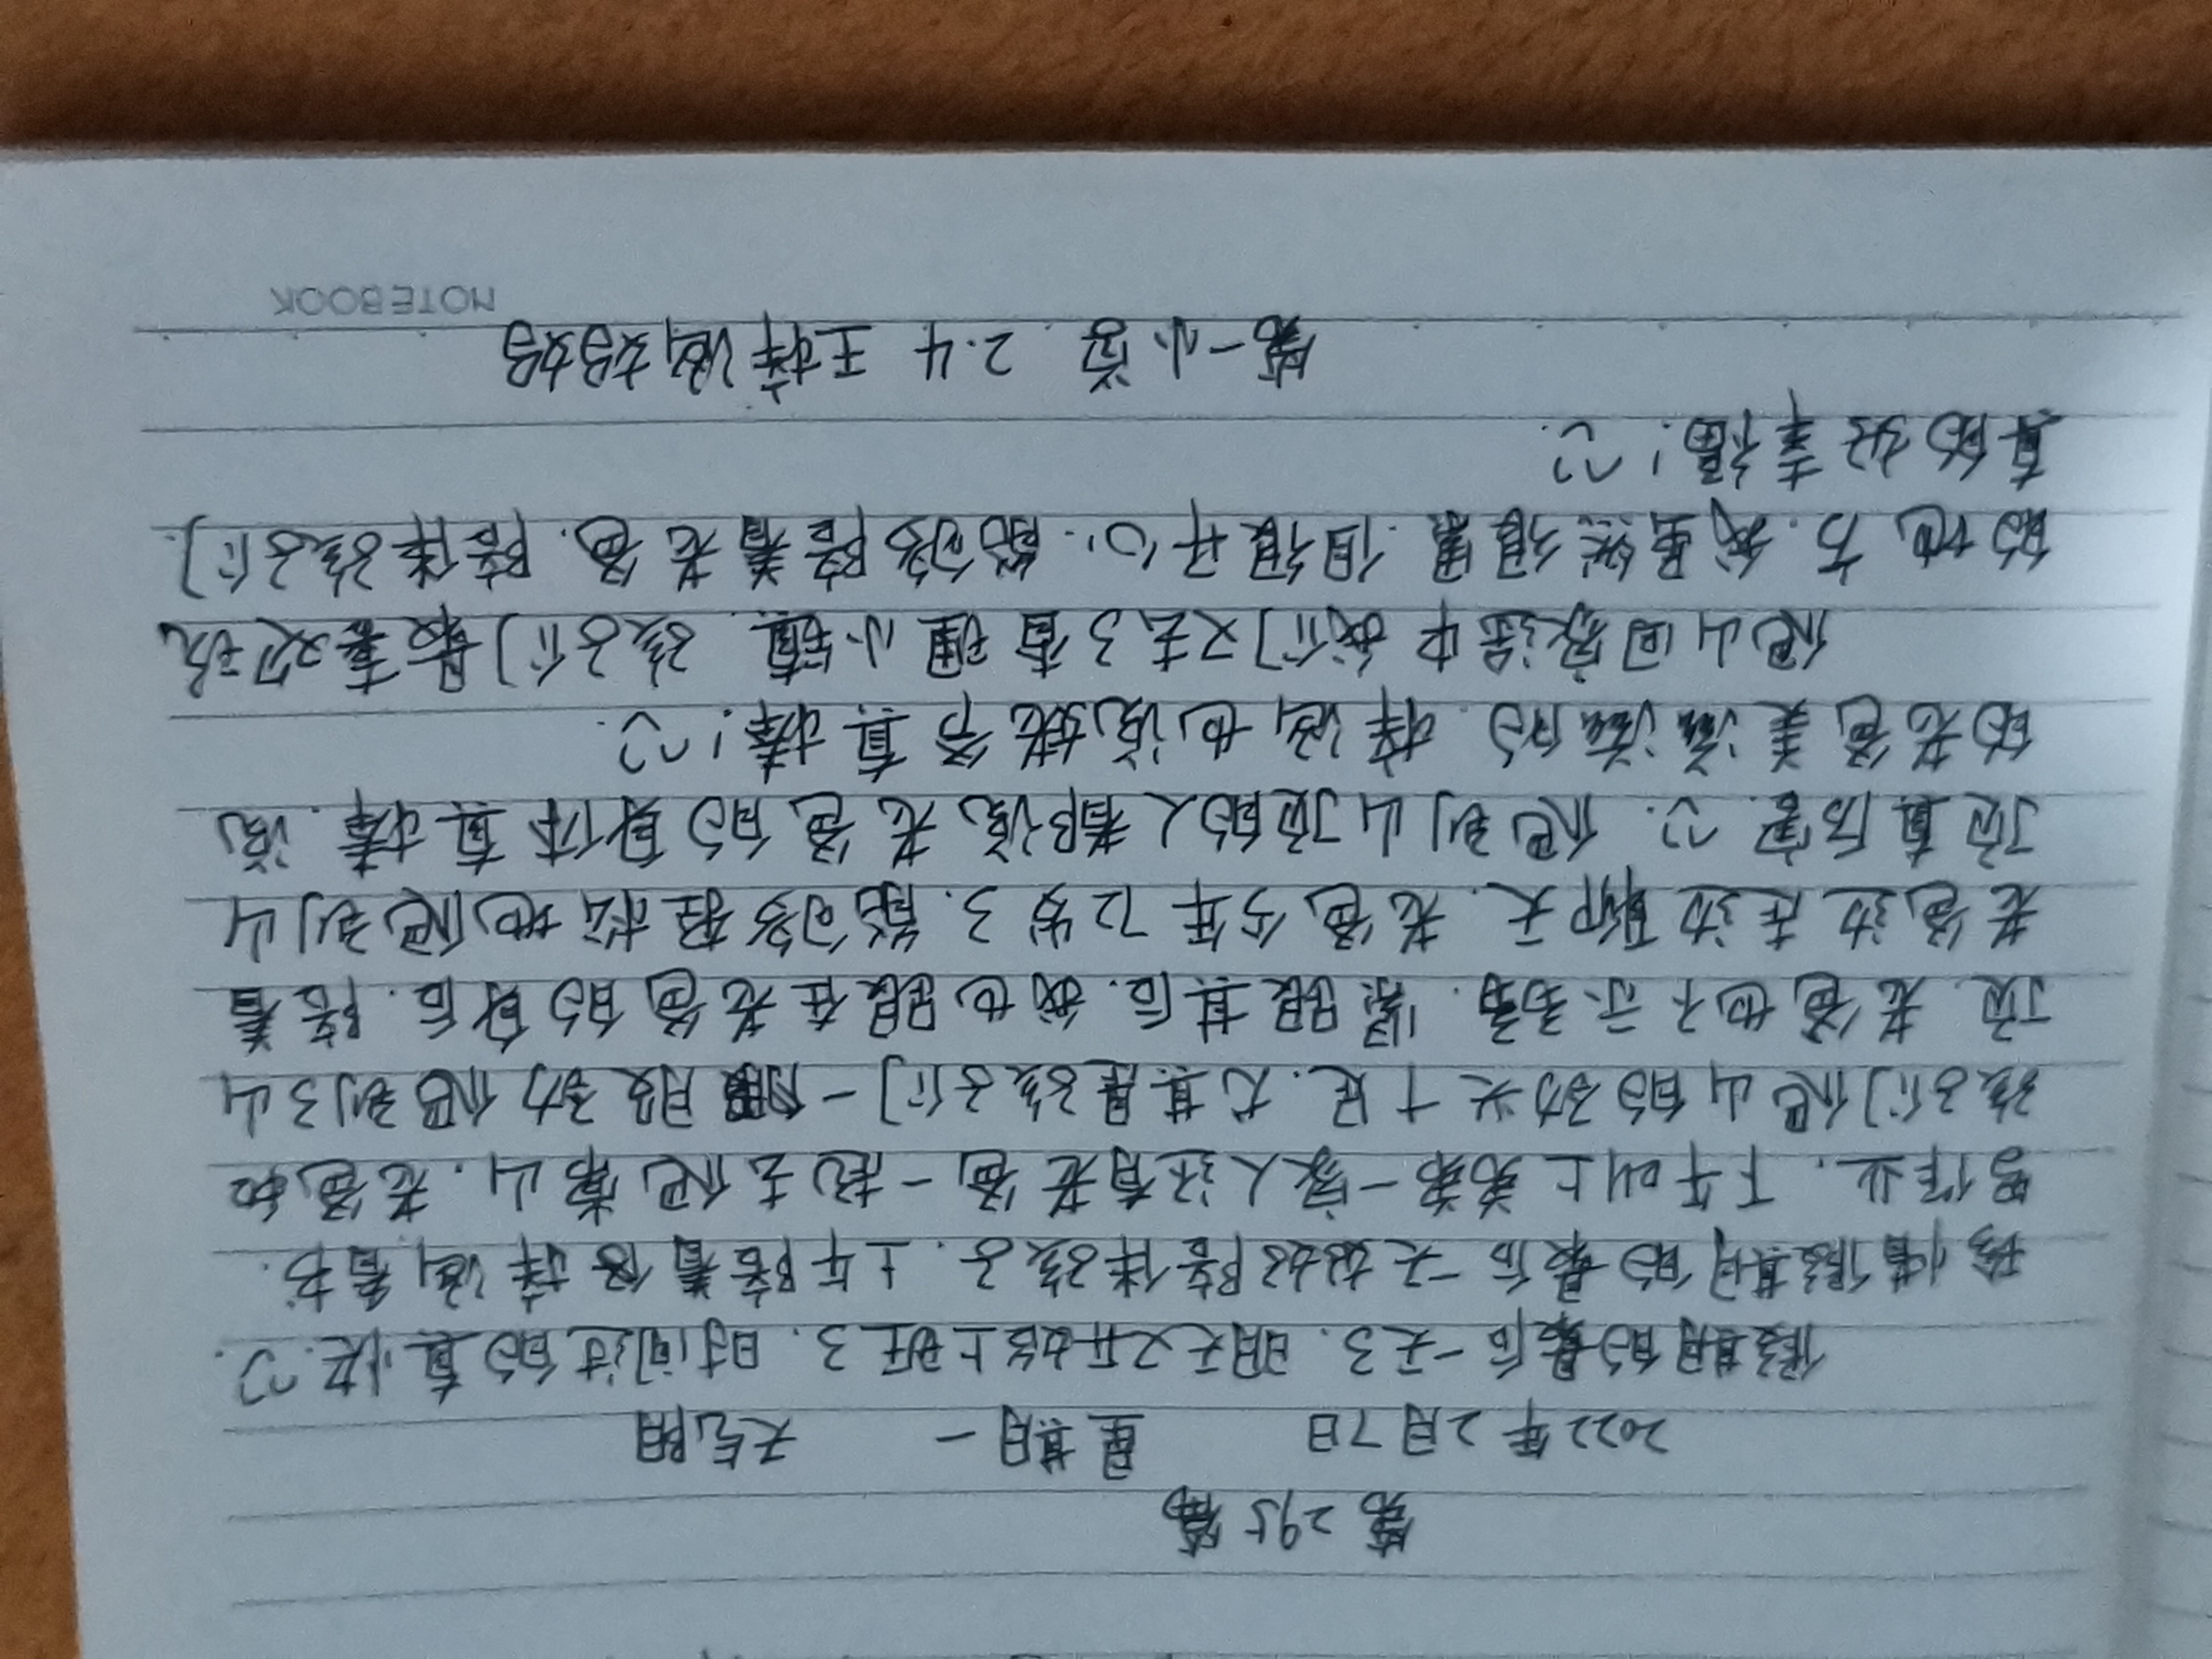 第295篇
2022年2月7日 星期一 天气阴
假期的最后一天了.明天又开始上班了.时间过的真快.
珍惜假期的最后一天好好陪伴孩子.上午陪着你梓涵看书.
写作业.下午叫上弟弟一家人还有老爸一起去爬常山.老爸和
孩子们爬山的劲头十足.尤其是孩子们一股劲爬到了山
顶.老爸也不示弱.紧跟其后.我也跟在老爸的身后.陪着
老爸边走边聊天.老爸今年72岁了.能够轻松地爬到山
顶真厉害.爬到山顶的人都说老爸的身体真棒.说
的老爸美滋滋的.梓涵也说姥爷真棒!
爬山回家途中我们又去了百理小镇.孩子们最喜欢玩
的地方.我虽然很累.但很开心.能够陪着老爸.陪伴孩子们.
真的好幸福!
第一小学 2.4 王梓涵妈妈
NOTEBOOK